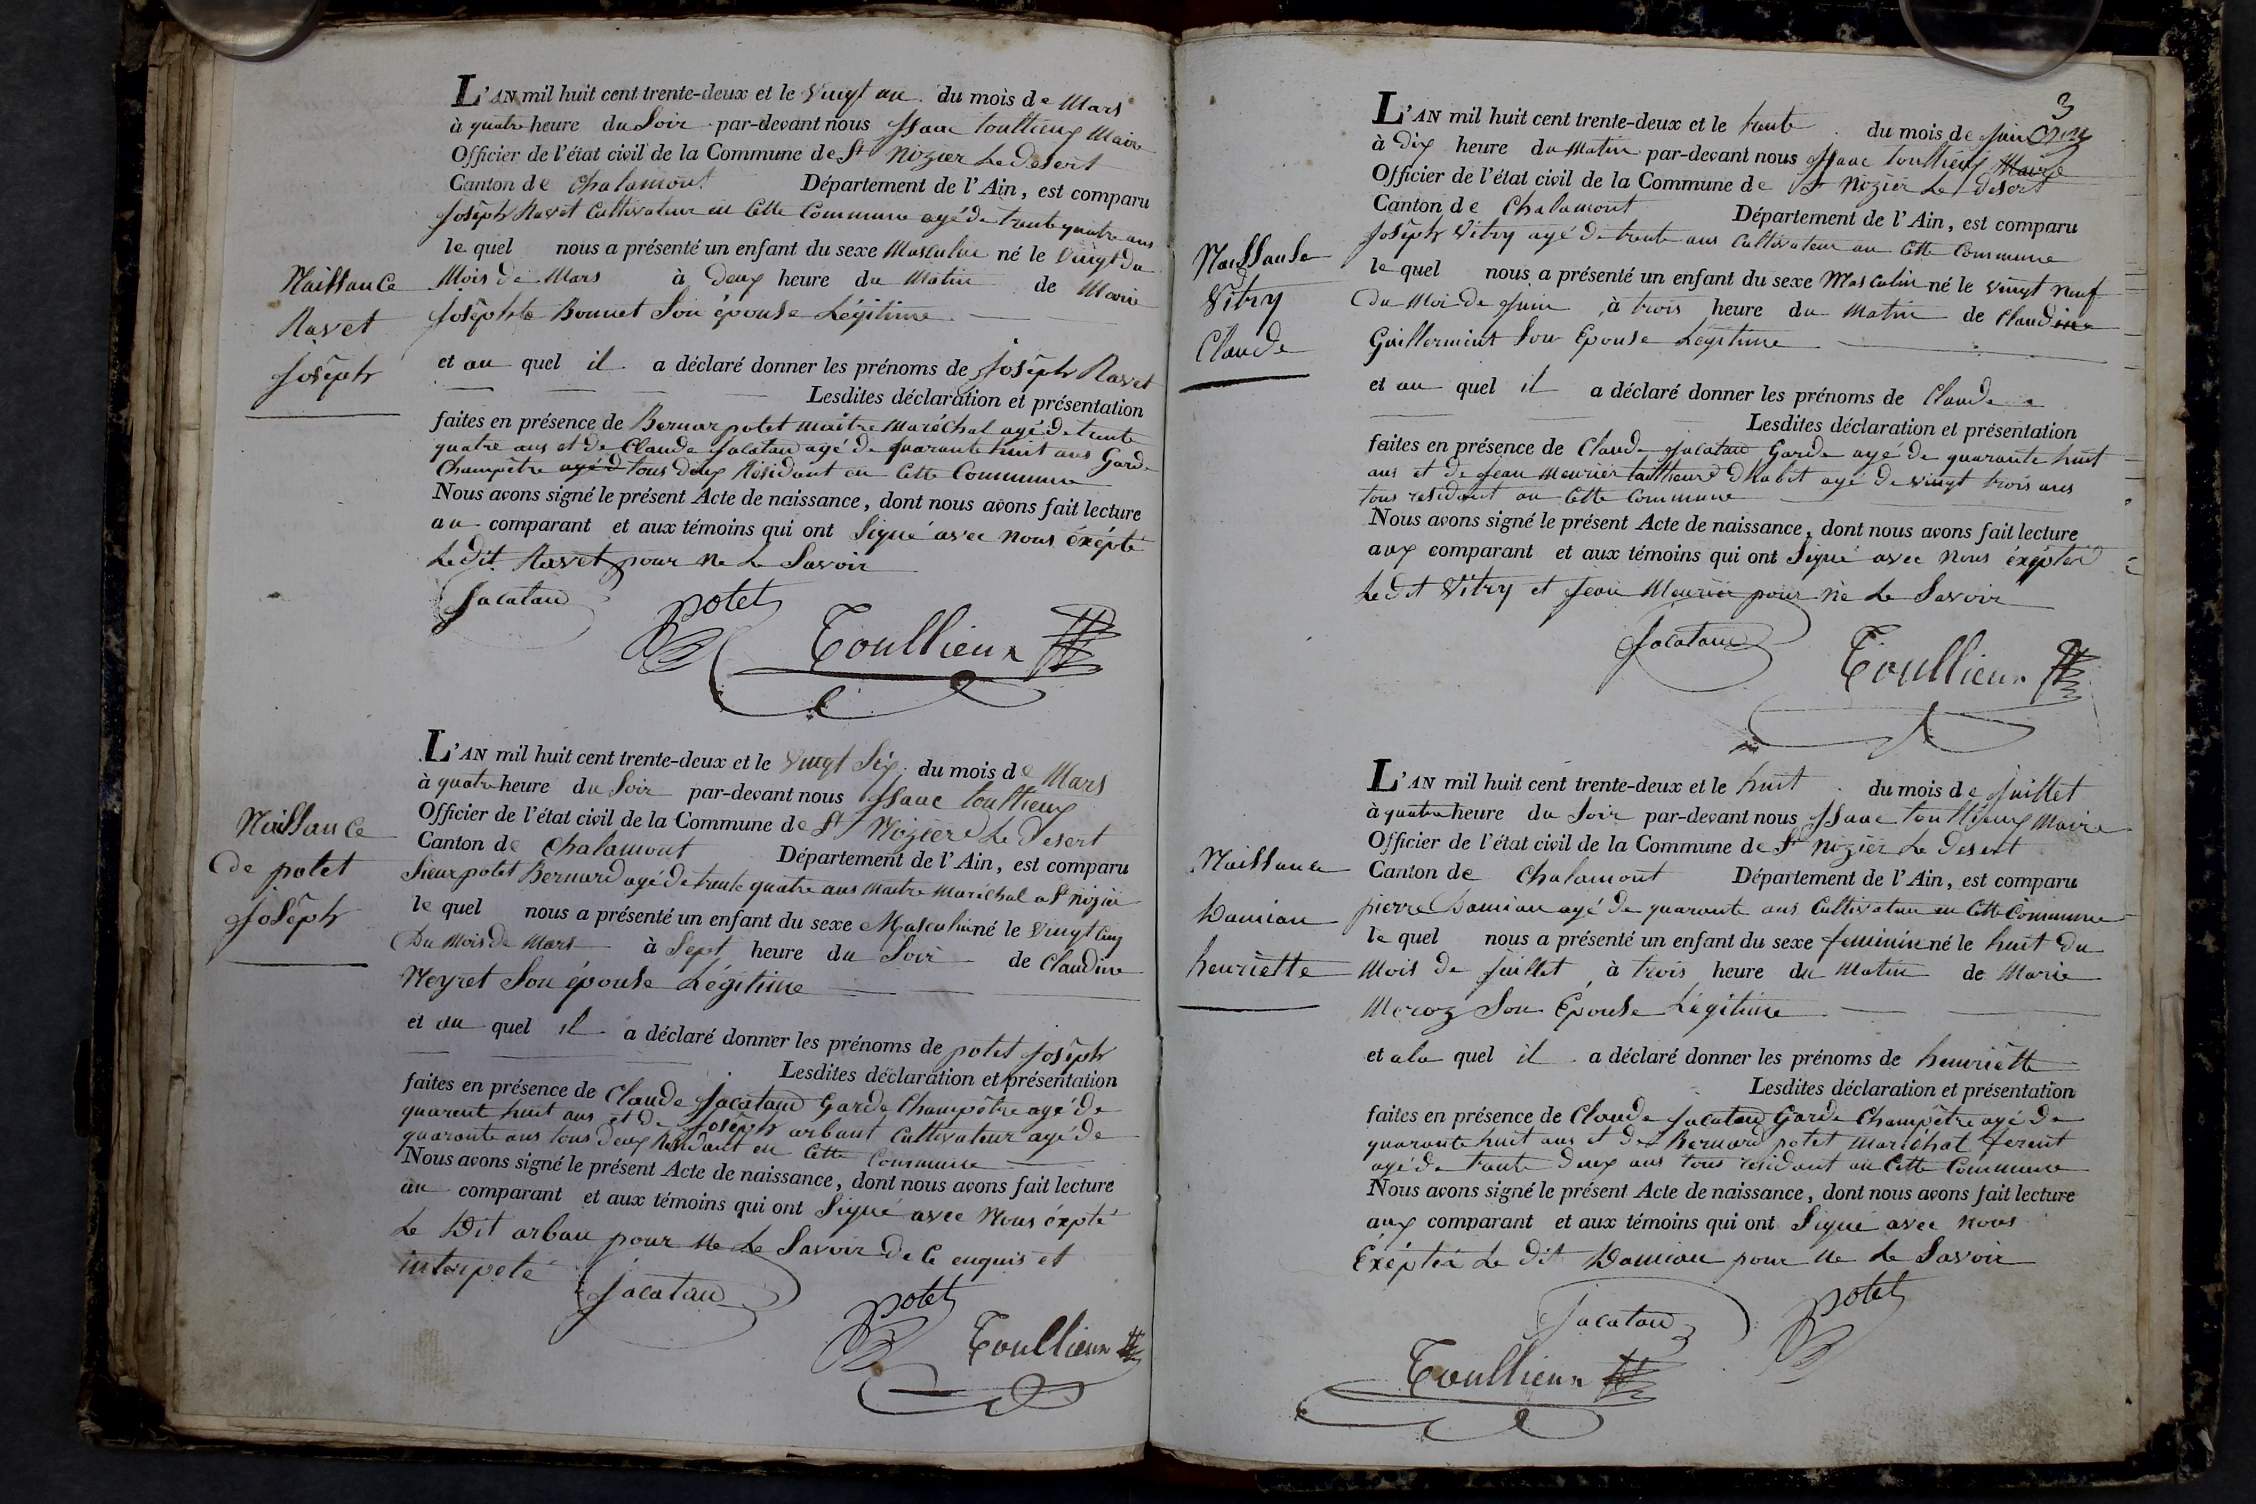 L'AN mil huit cent trente-deux et le vingt un du mois de Mars
à quatre heure du Soir par-devant nous Isaac toullieux Maire
Officier de l'état civil de la Commune de St Nizier Le Desert
Canton de Chalamont Département de l'Ain, est comparu
Joseph Ravet Cultivateur en Cette Commune agé de trente quatre ans
le quel nous a présenté un enfant du sexe Masculin né le Vingt du
Mois de Mars à deux heure du Matin de Marie
Josephte Bonnet Son épouse Légitime
Naissance
Ravet
Joseph
et au quel il a déclaré donner les prénoms de Joseph Ravet
Lesdites déclaration et présentation
faites en présence de Bernar potet maitre Maréchal agé de trente
quatre ans et de Claude Jacatau agé de quarante huit ans Garde
Champêtre agé d tous deux Residant en Cette Commune
Nous avons signé le présent Acte de naissance, dont nous avons fait lecture
au comparant et aux témoins qui ont Signé avec nous éxépté
Le dit Ravet pour ne Le Savoir
Jacatau
potet
Toullieux
L'AN mil huit cent trente-deux et le vingt Six du mois de Mars
à quatre heure du Soir par-devant nous Isaac toullieux
Officier de l'état civil de la Commune de St Nizier Le Desert
Canton de Chalamont Département de l'Ain, est comparu
Sieur potet Bernard agé de trente quatre ans Maitre Maréchal a St nizier
le quel nous a présenté un enfant du sexe Masculin né le Vingt Cinq
Du Mois de Mars à Sept heure du Soir de Claudine
Neyret Son épouse Légitime
Naissance
de potet
Joseph
et au quel il a déclaré donner les prénoms de potet Joseph
Lesdites déclaration et présentation
faites en présence de Claude Jacatau Garde Champêtre agé de
quarent huit ans et de Joseph arbant Cultivateur agé de
quarante ans tous deux Residant en Cette Commune
Nous avons signé le présent Acte de naissance, dont nous avons fait lecture
au comparant et aux témoins qui ont Signé avec Nous éxpté
Le Dit arbau pour Ne Le Savoir de Ce enquis et
interpelé
Jacatau
potet
Toullieux
3
L'AN mil huit cent trente-deux et le trente du mois de Juin
à dix heure du Matin par-devant nous Isaac toullieux Maire
Officier de l'état civil de la Commune de St Nizier Le Desert
Canton de Chalamont Département de l'Ain, est comparu
Joseph Vitry agé de trente ans Cultivateur en Cette Commune
le quel nous a présenté un enfant du sexe Masculin né le vingt neuf
du Moi de Juin à trois heure du Matin de Claudine
Guillermint Son Epouse Légitime
Naissance
Vitry
Claude
et au quel il a déclaré donner les prénoms de Claude
Lesdites déclaration et présentation
faites en présence de Claude Jacatau Garde agé de quarante huit
ans et de Jean Meurier tailleur d'habit agé de vingt trois ans
tous residant en Cette Commune
Nous avons signé le présent Acte de naissance, dont nous avons fait lecture
aux comparant et aux témoins qui ont Signé avec Nous
Le dit Vitry et Jean Meurier pour ne Le Savoir
Jacatau
Toullieux
L'AN mil huit cent trente-deux et le huit du mois de Juillet
à quatre heure du Soir par-devant nous Isaac toullieux Maire
Officier de l'état civil de la Commune de St Nizier Le Desert
Canton de Chalamont Département de l'Ain, est comparu
pierre Damian agé de quarante ans Cultivateur en Cette Commune
le quel nous a présenté un enfant du sexe feminin né le huit du
Mois de Juillet à trois heure du Matin de Marie
Meroz Son Epouse Légitime
Naissance
Damian
henriette
et a la quel il a déclaré donner les prénoms de henriette
Lesdites déclaration et présentation
faites en présence de Claude Jacatau Garde Champêtre agé de
quarante huit ans et de Bernard potet Maréchal ferent
agé de trente deux ans tous residant en Cette Commune
Nous avons signé le présent Acte de naissance, dont nous avons fait lecture
aux comparant et aux témoins qui ont Signé avec nous
Le dit Damian pour Ne Le Savoir
Jacatau
potet
Toullieux